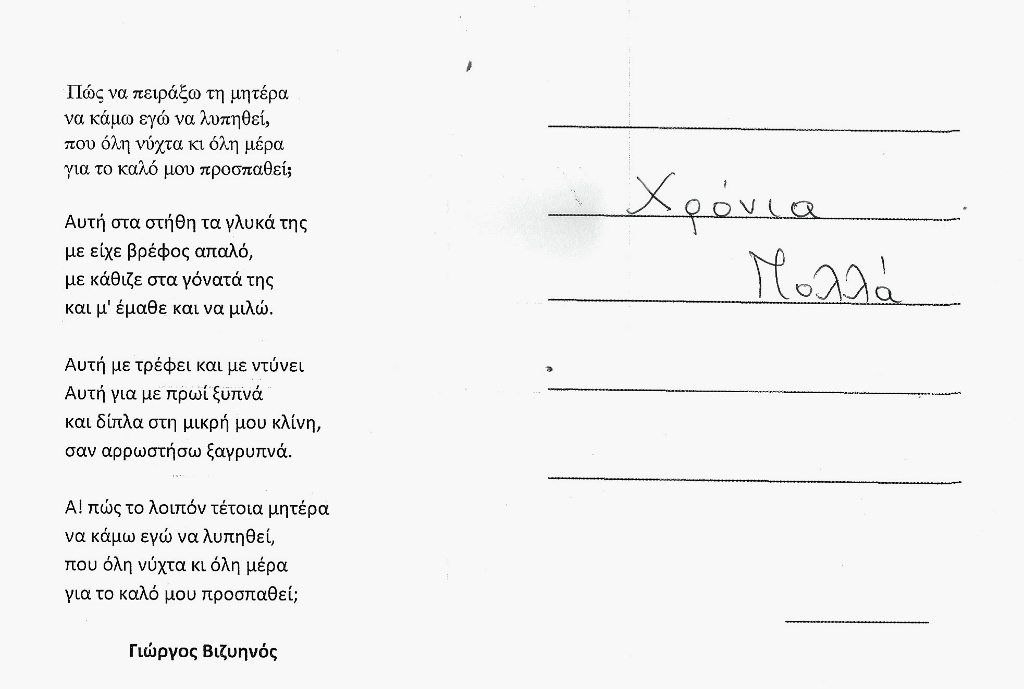 Πώς να πειράξω τη μητέρα
να κάμω εγώ να λυπηθεί,
που όλη νύχτα κι όλη μέρα
για το καλό μου προσπαθεί;
Αυτή στα στήθη τα γλυκά της
με είχε βρέφος απαλό,
με κάθιζε στα γόνατά της
και μ' έμαθε και να μιλώ.
Αυτή με τρέφει και με ντύνει
Αυτή για με πρωί ξυπνά
και δίπλα στη μικρή μου κλίνη,
σαν αρρωστήσω ξαγρυπνά.
Α! πώς το λοιπόν τέτοια μητέρα
να κάμω εγώ να λυπηθεί,
που όλη νύχτα κι όλη μέρα
για το καλό μου προσπαθεί;
Γιώργος Βιζυηνός
Χρόνια
Πολλά